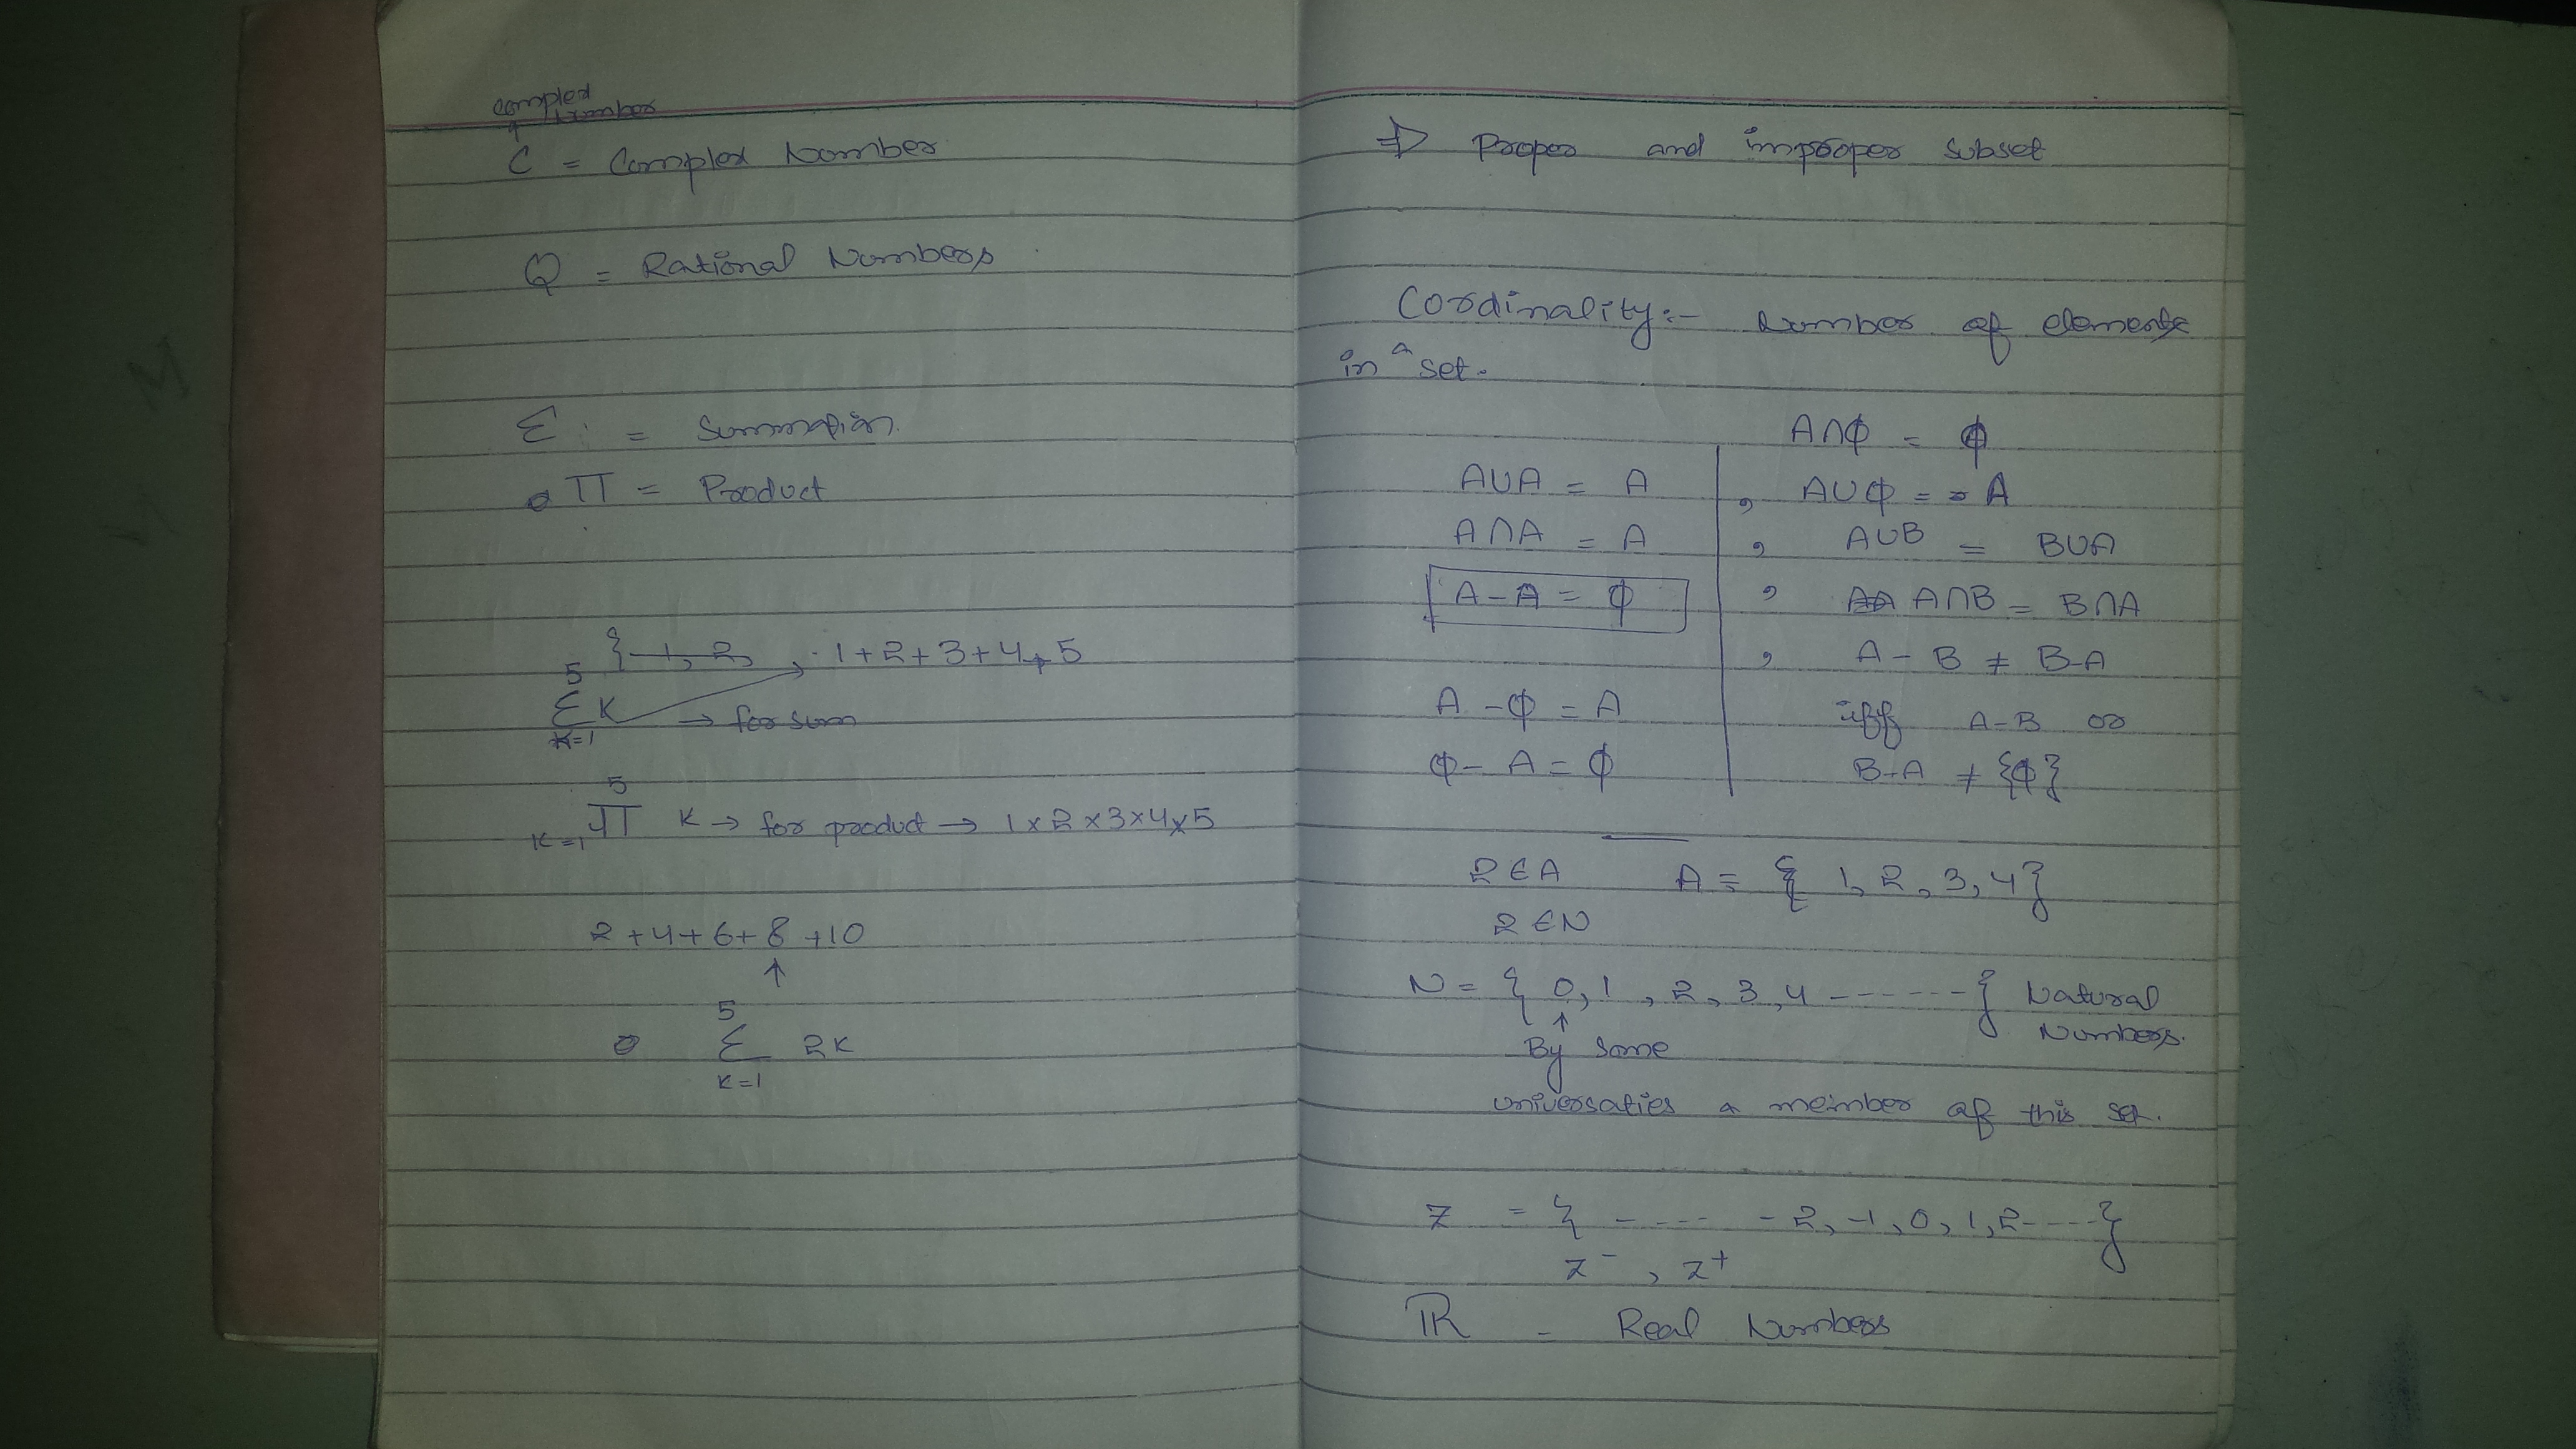 complex
number
↑
C = Complex Number
Q = Rational Numbers
Σ = Summation
Π = Product
{ 1, 2, 1+2+3+4+5
5
Σ K → for sum
K=1
5
Π K → for product → 1×2×3×4×5
K=1
2+4+6+8+10
↑
5
Σ 2K
K=1
⇒ Proper and improper subset
Cordinality:- Number of elements
in a set.
A∩ϕ = ϕ
A∪A = A , A∪ϕ = A
A∩A = A , A∪B = B∪A
A-A = ϕ , A∩B = B∩A
, A-B ≠ B-A
A-ϕ = A iff A-B or
ϕ-A = ϕ B-A ≠ {ϕ}
2∈A A = { 1, 2, 3, 4}
2∈N
N = { 0, 1, 2, 3, 4 ------} Natural
Numbers.
↑
By some
universaties a member of this set.
Z = { ---- -2, -1, 0, 1, 2----}
Z⁻, Z⁺
ℝ - Real Numbers